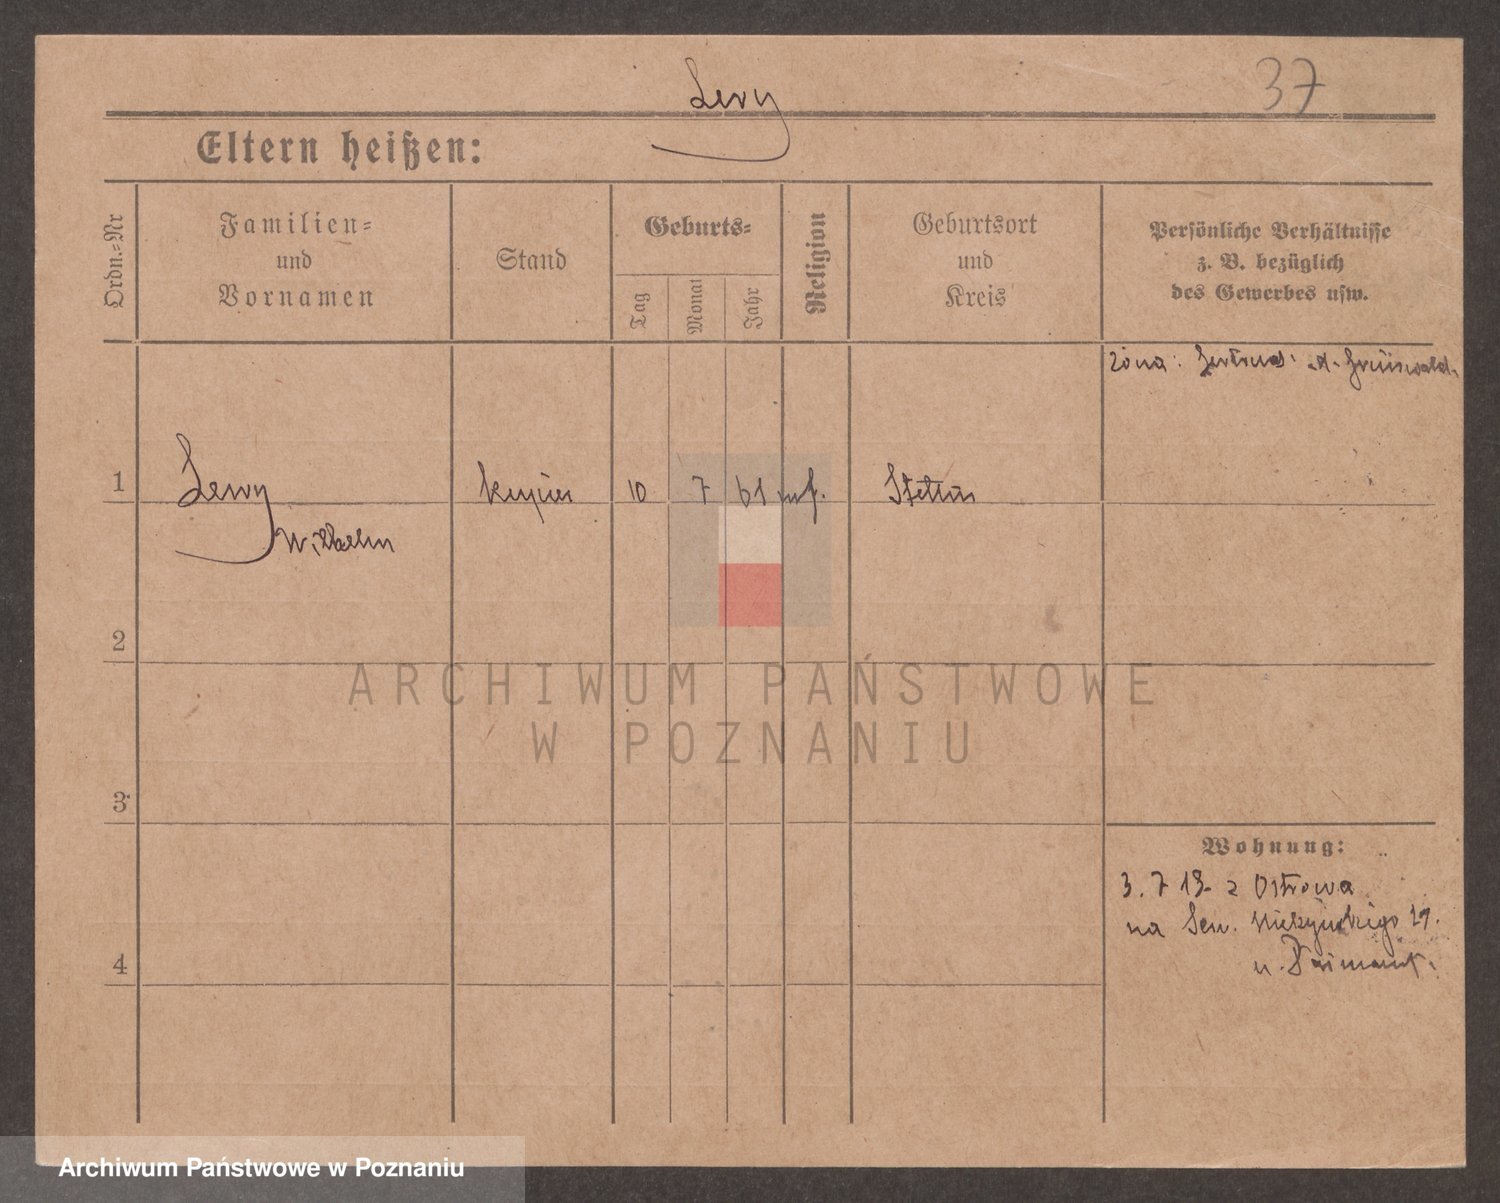 37
Levy
Eltern heißen:
Ordn.-Nr
Familien-
und
Vornamen
Stand
Geburts-
Tag
Monat
Jahr
Religion
Geburtsort
und
Kreis
Persönliche Verhältnisse
z. B. bezüglich
des Gewerbes usw.
żona: Gertrud A. Grünwald
1
Levy
kupiec
10
7
61
Stettin
Wilhelm
2
3
Wohnung:
3. 7 19. z Ostrowa
na Sew. 29.
u.
4
ARCHIWUM PAŃSTWOWE
W POZNANIU
Archiwum Państwowe w Poznaniu